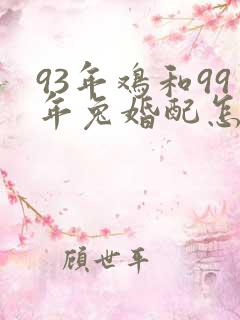 93年鸡和99
年兔婚配怎
顾世平